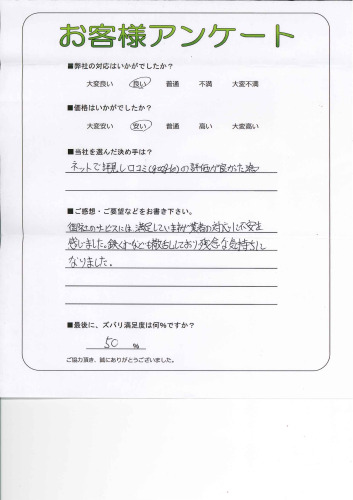 お客様アンケート
■弊社の対応はいかがでしたか？
大変良い 良い 普通 不満 大変不満
■価格はいかがでしたか？
大変安い 安い 普通 高い 大変高い
■当社を選んだ決め手は？
ネットで拝見し口コミ( )の評価が良かった為
■ご感想・ご要望などをお書き下さい。
御社のサービスには満足していますが業者の対応に不安を
感じました。鉄くずなども散乱しており残念な気持ちに
なりました。
■最後に、ズバリ満足度は何％ですか？
50 ％
ご協力頂き、誠にありがとうございました。